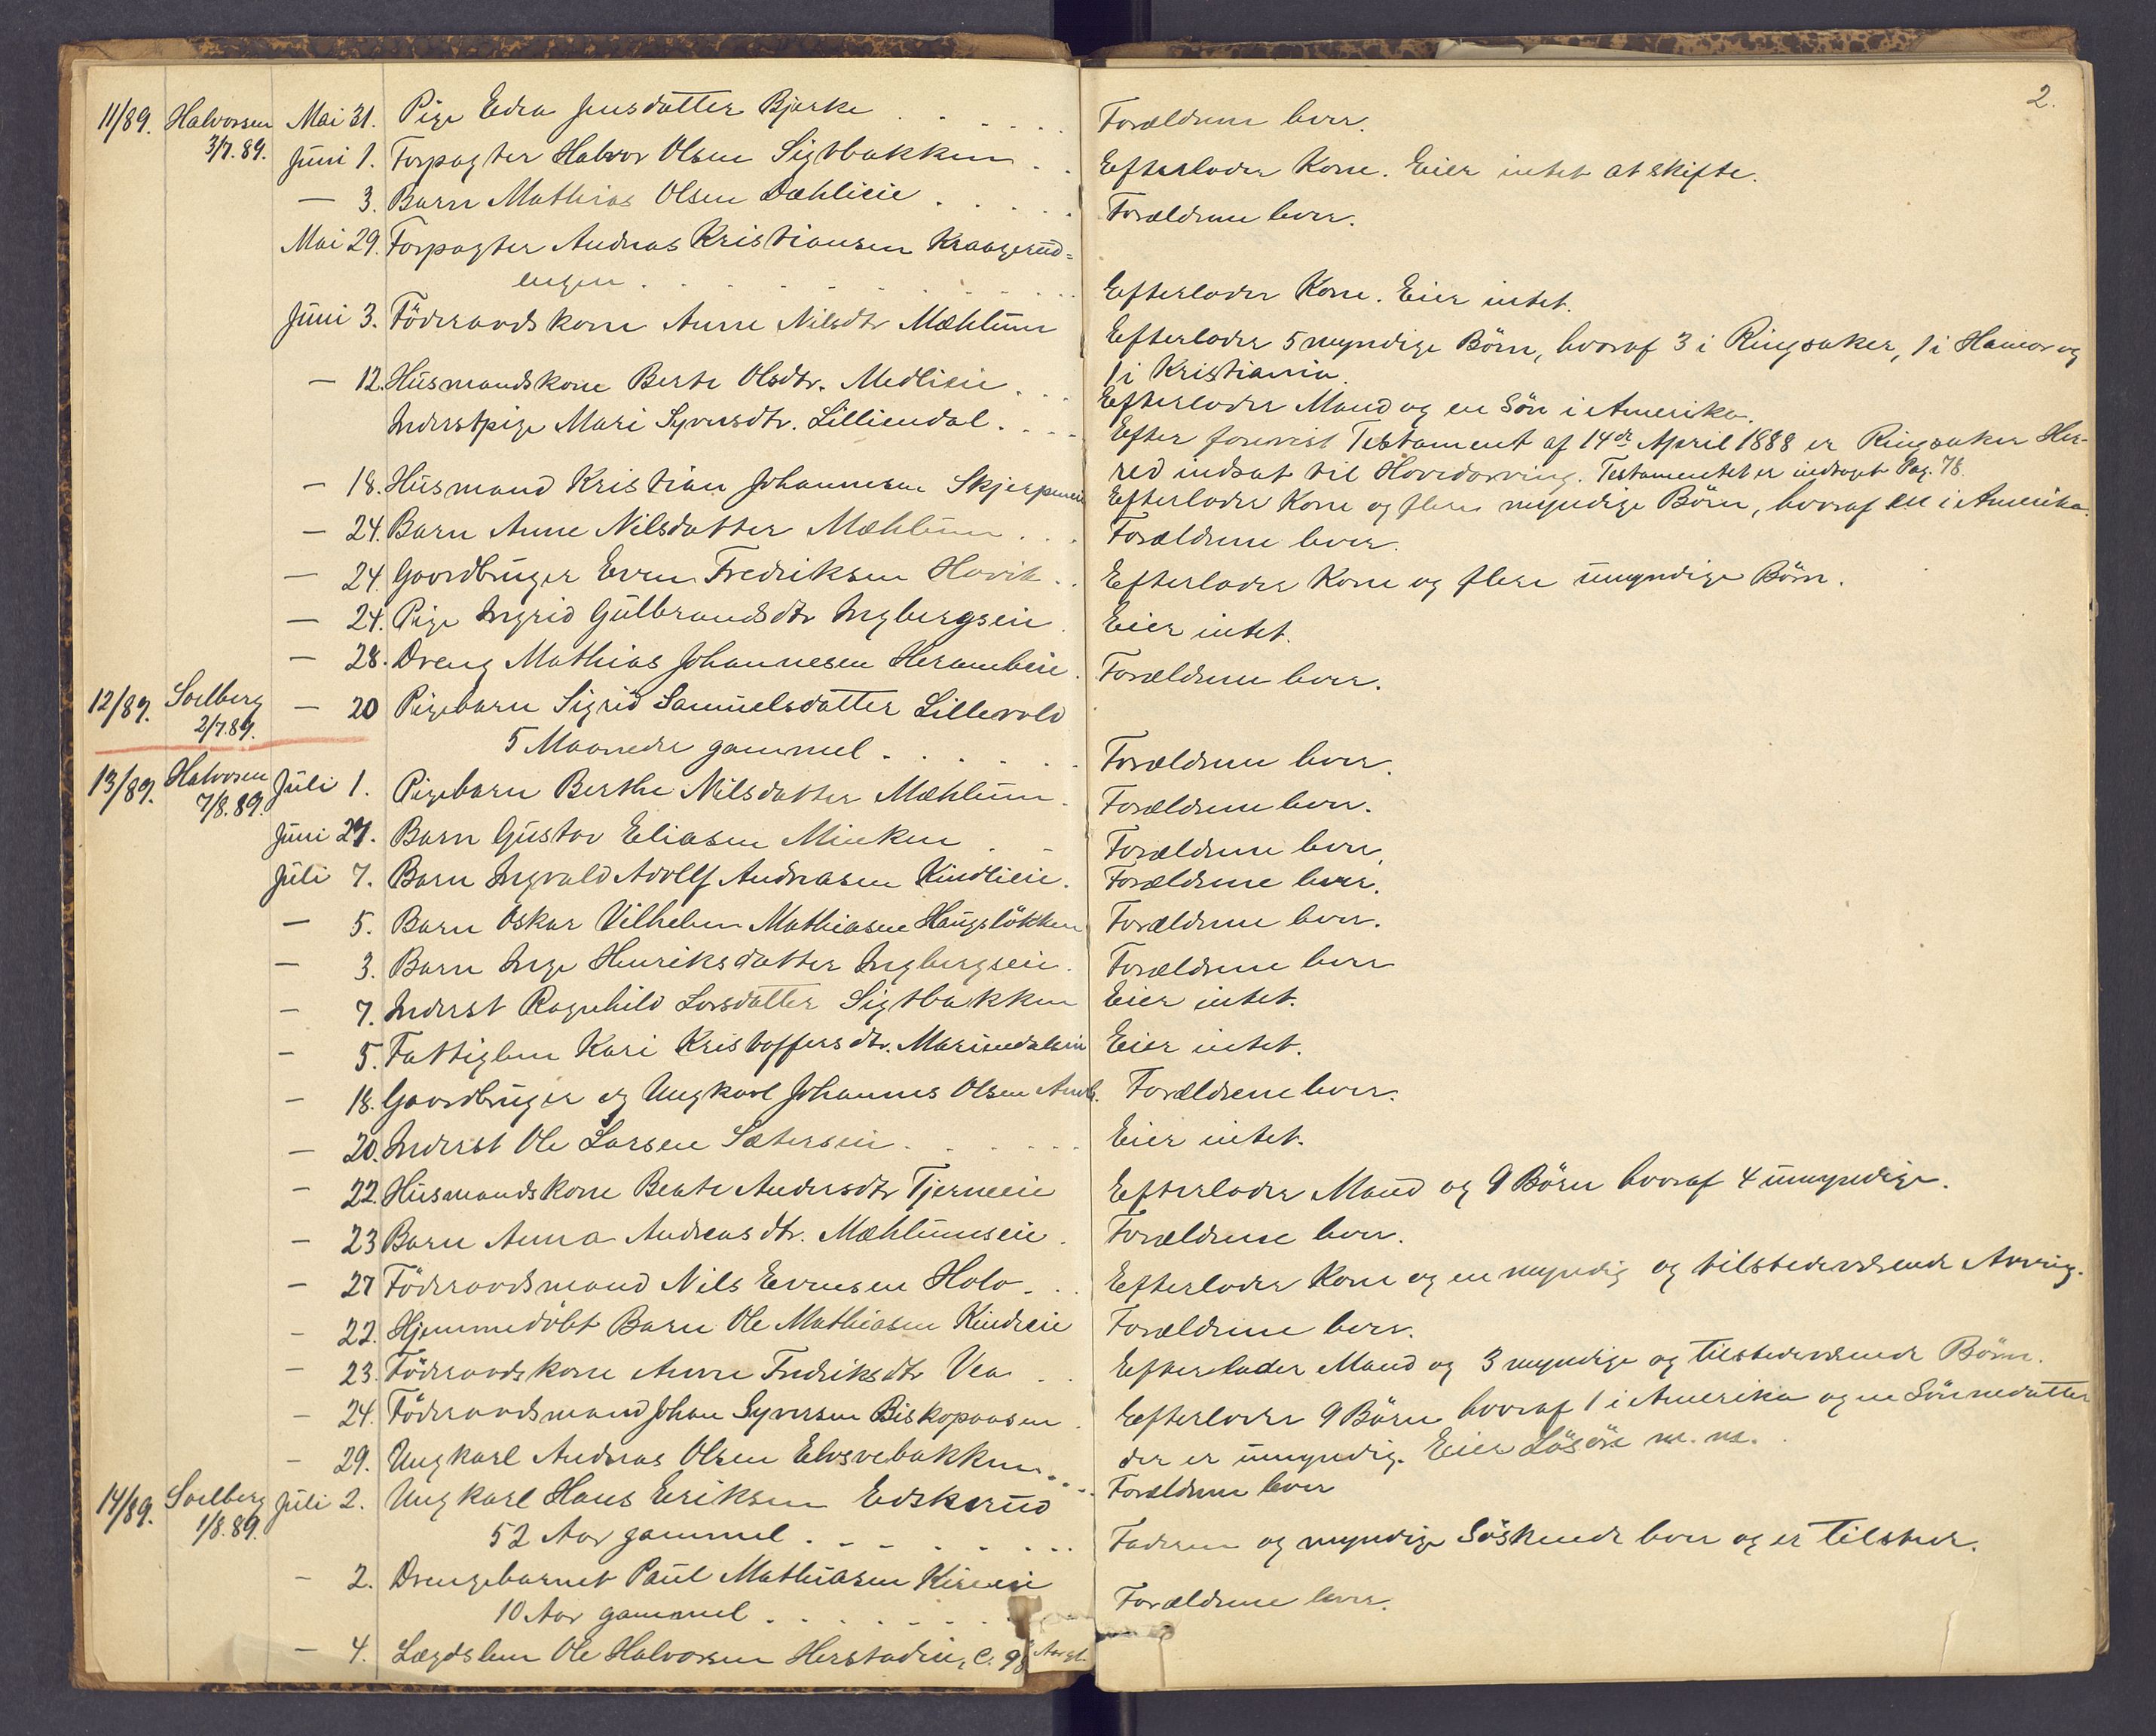 2.
11/89. Halvorsen Mai 31. Pige Edra Jensdatter Bjerke Forældrene lever.
3/7.89. Juni 1. Forpagter Halvor Olsen Sigtbakken Efterlader Kone. Eier intet at skifte.
— 3. Barn Mathias Olsen Dæhlieie Forældrene lever.
Mai 29. Forpagter Andreas Kristiansen Kraagerud=
engen Efterlader Kone. Eier intet.
Juni 3. Föderaadskone Anne Nilsdtr Mæhlum Efterlader 5 myndige Börn, hvoraf 3 i Ringsaker, 1 i Hamar og
1 i Kristiania.
— 12. Husmandskone Berte Olsdtr. Medlieie Efterlader Mand og en Sön i Amerika.
Inderstpige Mari Syversdtr. Lilliendal Efter forevist Testament af 14de April 1888 er Ringsaker Her-
red indsat til Hovedarving. Testamentet er indtaget Pag. 78.
— 18. Husmand Kristian Johannesen Efterlader Kone og flere myndige Börn, hvoraf en i Amerika.
— 24. Barn Anne Nilsdatter Mæhlum Forældrene lever.
— 24. Gaardbruger Even Fredriksen Hovik Efterlader Kone og flere umyndige Börn.
— 24. Pige Ingrid Gulbrandsdtr Ingbergseie Eier intet.
— 28. Dreng Mathias Johannesen Forældrene lever.
12/89. Soelberg — 20 Pigebarn Sigrid Samuelsdatter Lillevold
2/7.89. 5 Maaneder gammel Forældrene lever.
13/89. Halvorsen Juli 1. Pigebarn Berthe Nilsdatter Mæhlum Forældrene lever.
7/8.89. Juni 27. Barn Gustav Eliasen Forældrene lever,
Juli 7. Barn Ingvald Adolf Andreasen Kindlieie. Forældrene lever.
— 5. Barn Oskar Vilhelm Mathiasen Haugslökken Forældrene lever.
— 3. Barn Inge Henriksdatter Ingbergseie. Forældrene lever
— 7. Inderst Ragnhild Larsdatter Sigtbakken Eier intet.
— 5. Fattiglem Kari Kristoffersdtr. Eier intet.
— 18. Gaardbruger og Ungkarl Johannes Olsen Forældrene lever.
— 20. Inderst Ole Larsen Sæterseie Eier intet.
— 22. Husmandskone Beate Andersdtr Tjerneeie Efterlader Mand og 9 Börn hvoraf 4 umyndige.
— 23 Barn Anna Andreasdtr. Mæhlumseie. Forældrene lever.
— 27 Föderaadsmand Nils Evensen Holo Efterlader Kone og en myndig og tilstedeværende Arving.
— 22. Hjemmedöbt Barn Ole Mathiasen Forældrene lever.
— 23. Föderaadskone Anne Fredriksdtr Vea Efterlader Mand og 3 myndige og tilstedeværende Börn.
— 24. Föderaadsmand Johan Syversen Biskopaasen Efterlader 9 Börn hvoraf 1 i Amerika og en Sönnedatter
der er umyndig. Eier Lösöre m. m.
— 29. Ungkarl Andreas Olsen Forældrene lever
14/89. Soelberg Juli 2. Ungkarl Hans Eriksen Edskerud
1/8.89. 52 Aar gammel Faderen og myndige Söskende lever og er tilstede.
— 2. Drengebarnet Paul Mathiasen
10 Aar gammel Forældrene lever.
— 4. Lægdslem Ole Halvorsen Herstadeie, c. 98 Aar gl.